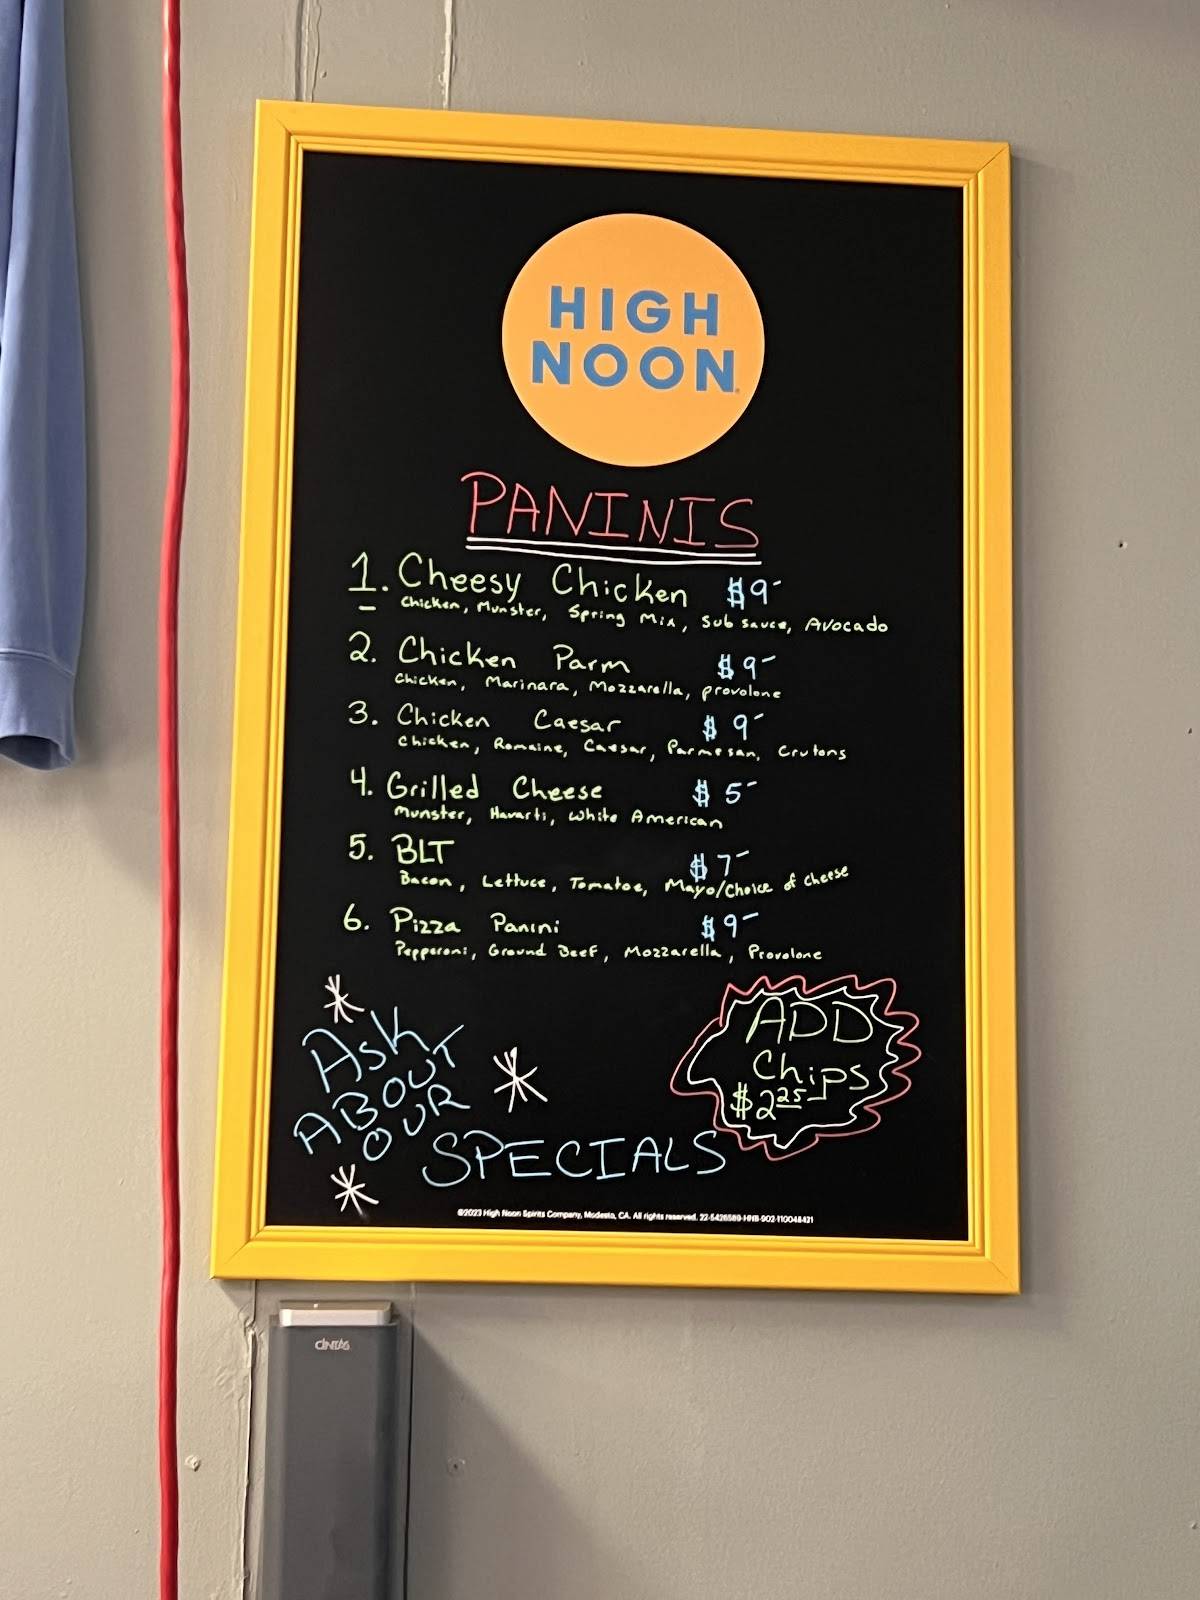 HIGH
NOON
PANINIS
1. Cheesy Chicken $9-
Chicken, Munster, Spring Mix, Sub sauce, Avocado
2. Chicken Parm $9-
Chicken, Marinara, Mozzarella, provolone
3. Chicken Caesar $9-
Chicken, Romaine, Caesar, Parmesan, Crutons
4. Grilled Cheese $5-
Munster, Havarti, white American
5. BLT $7-
Bacon, Lettuce, Tomatoe, Mayo/Choice of cheese
6. Pizza Panini $9-
Pepperoni, Ground Beef, Mozzarella, Provolone
ADD
Chips
$2.25
ASK
ABOUT
OUR
SPECIALS
©2023 High Noon Spirits Company, Modesto, CA. All rights reserved. 22-5426589-HNB-902-110048421
CINTAS